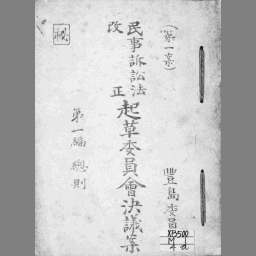 (第一案)
民事訴訟法
改正
起草委員會決議案
第一編 總則
豊島委員
秘
XB500
M4